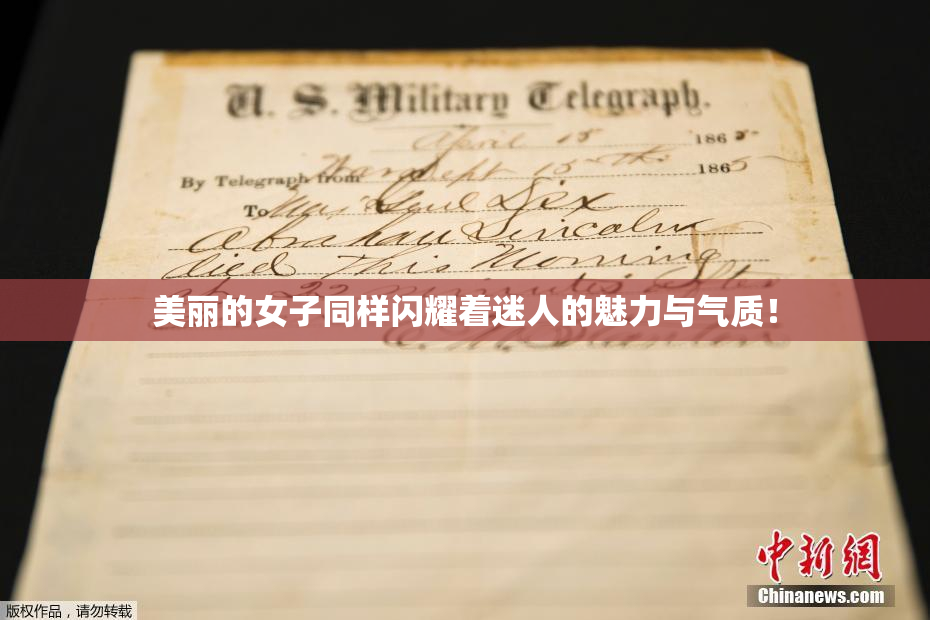 U. S. Military Telegraph.
April 15 1865
By Telegraph from War Dept 15th 1865
To Maj Genl Dix
Abraham Lincoln
died This Morning
at 22 minutes after
美丽的女子同样闪耀着迷人的魅力与气质！
E. M. Stanton
中新网
Chinanews.com
版权作品，请勿转载